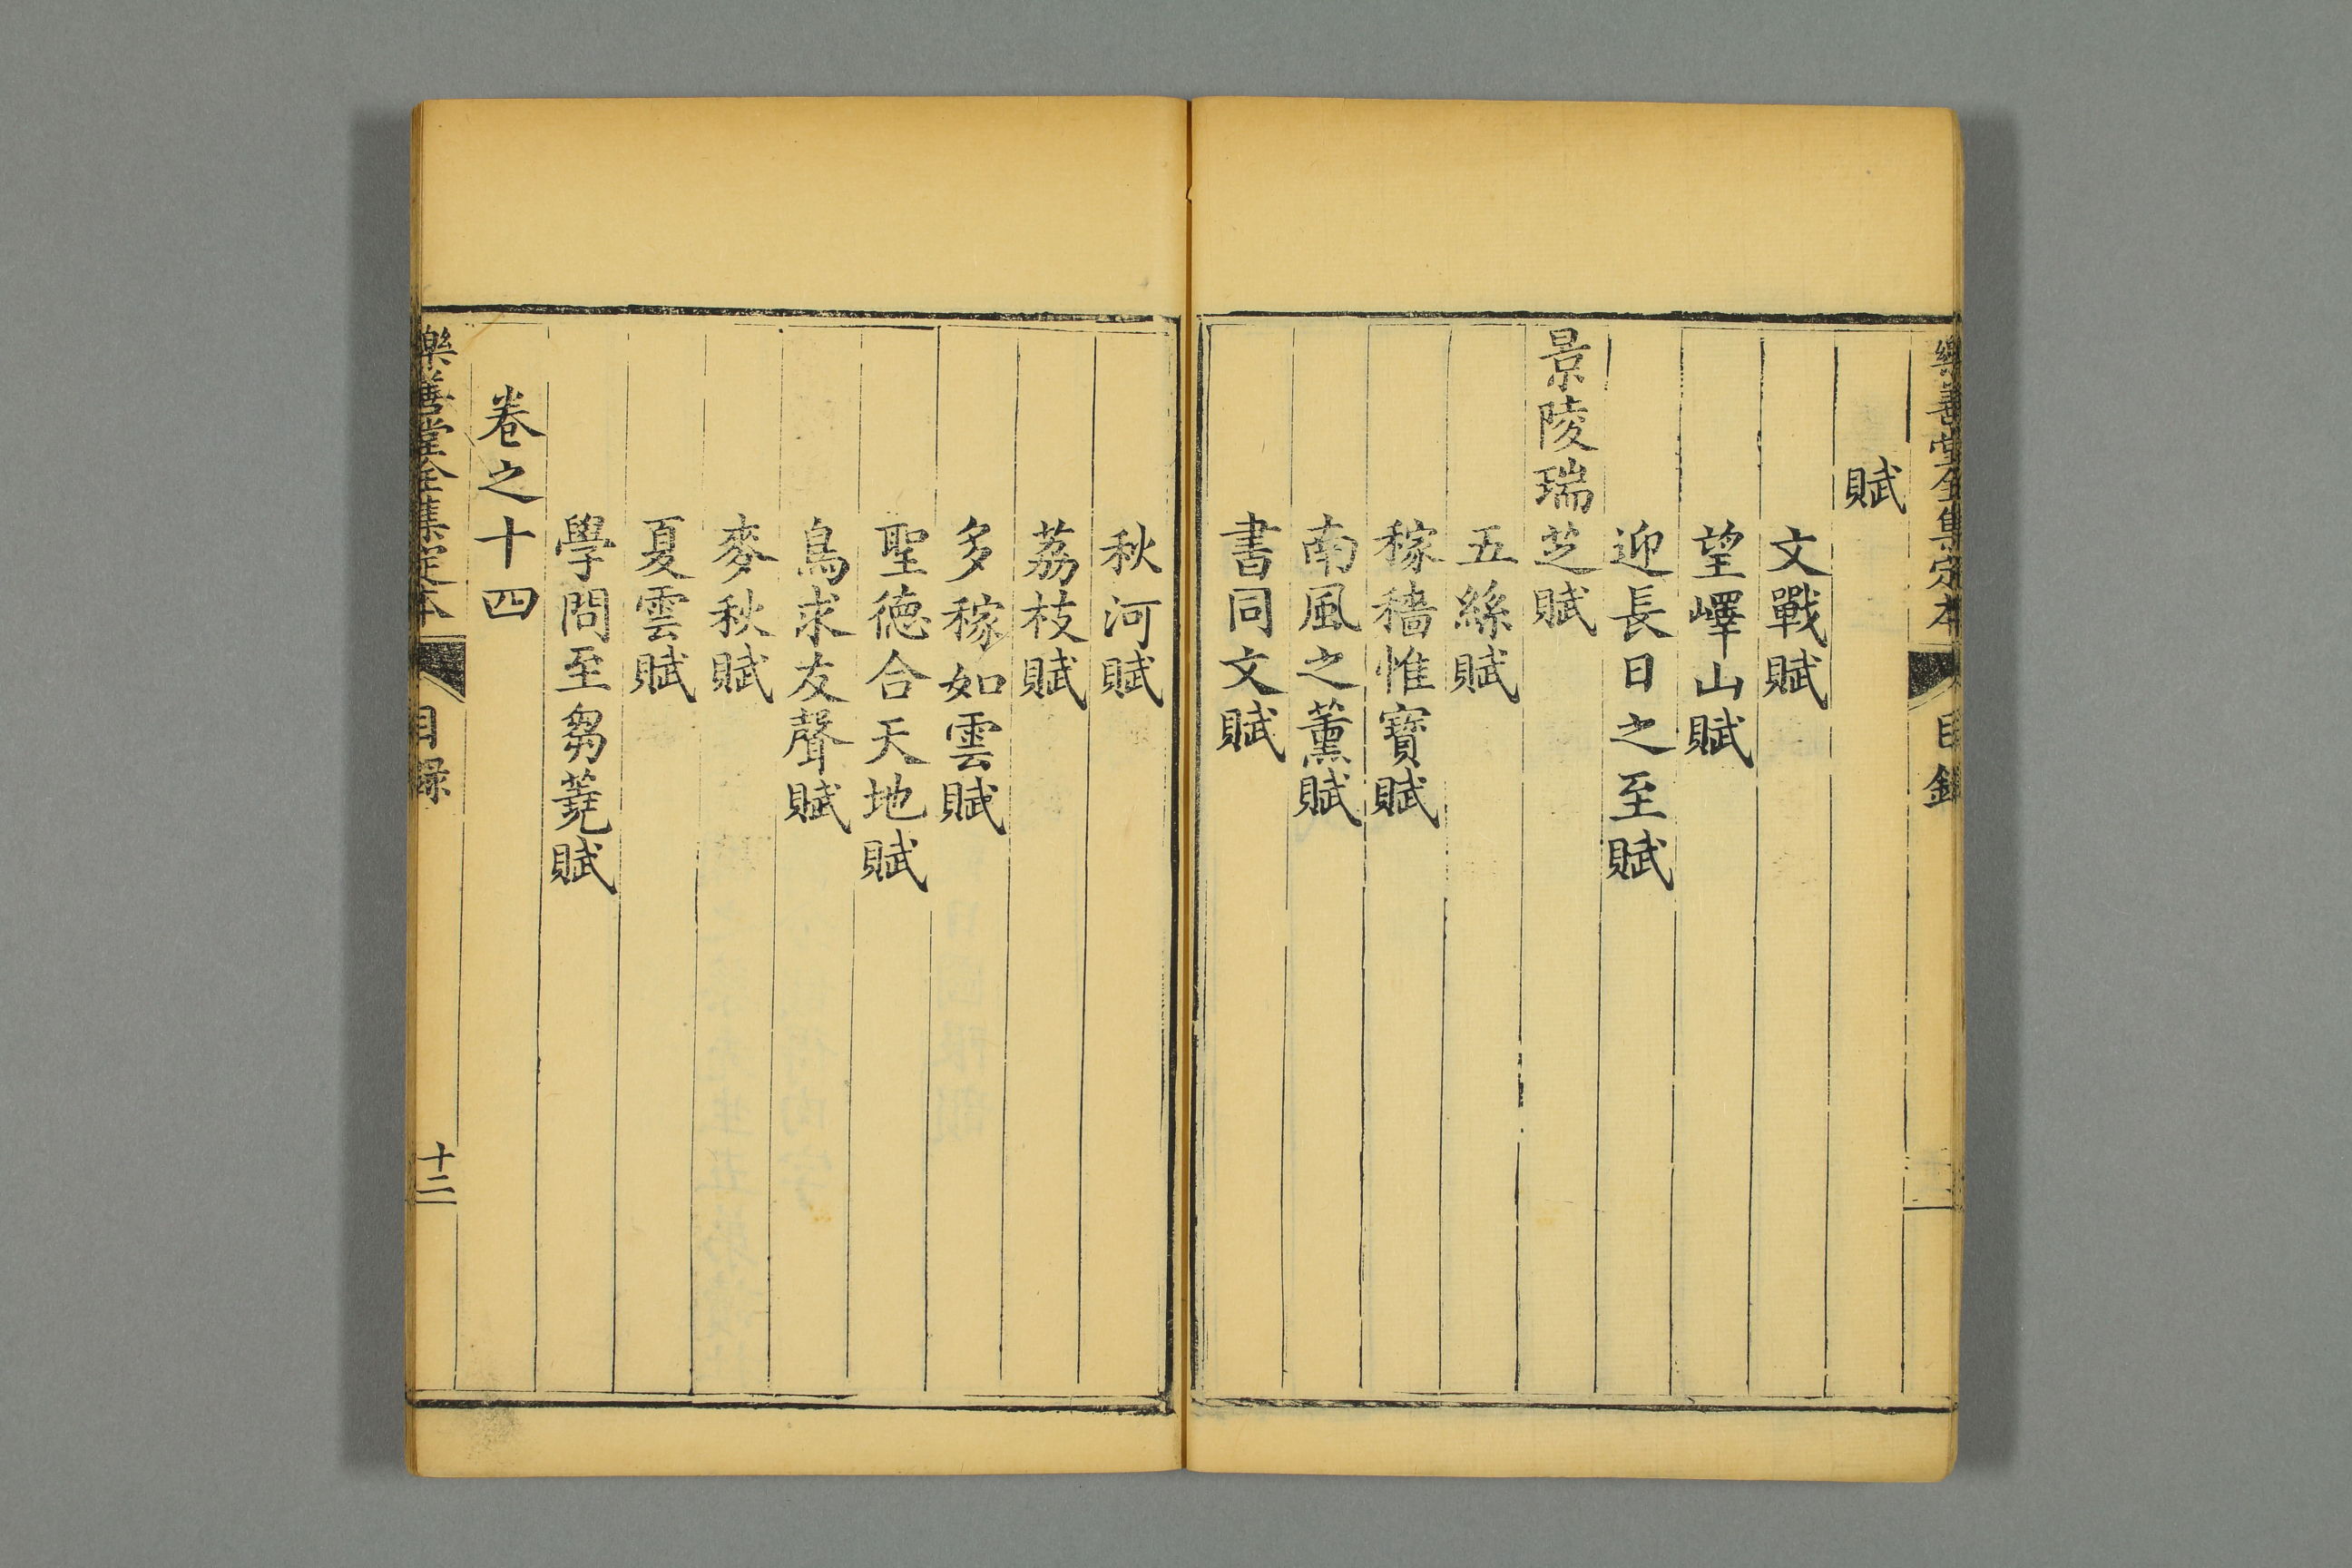 樂善堂全集定本 目錄
賦
文戰賦
望嶧山賦
迎長日之至賦
景陵瑞芝賦
五絲賦
稼穡惟寶賦
南風之薰賦
書同文賦
秋河賦
荔枝賦
多稼如雲賦
聖德合天地賦
鳥求友聲賦
麥秋賦
夏雲賦
學問至芻蕘賦
卷之十四
樂善堂全集定本 目錄 十二